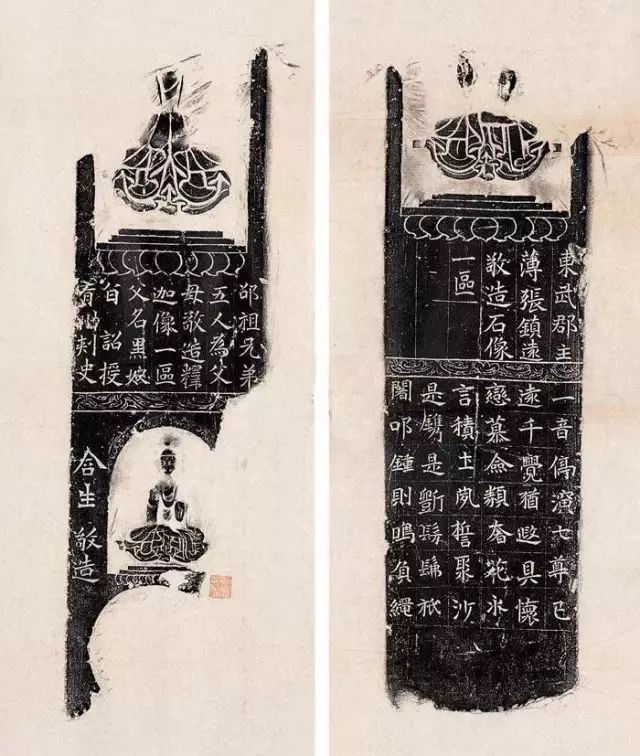 東武郡主
薄張鎮遠
敬造石像
一區
一音演七尊已
遠千覺猶具懷
戀慕僉類花永
言積土夙誓聚沙
是鐫是斵髣髴
闍叩鍾則鳴負繩
祖兄弟
五人為父
母敬造釋
迦像一區
父名黑
詔授
青州刺史
含生敬造